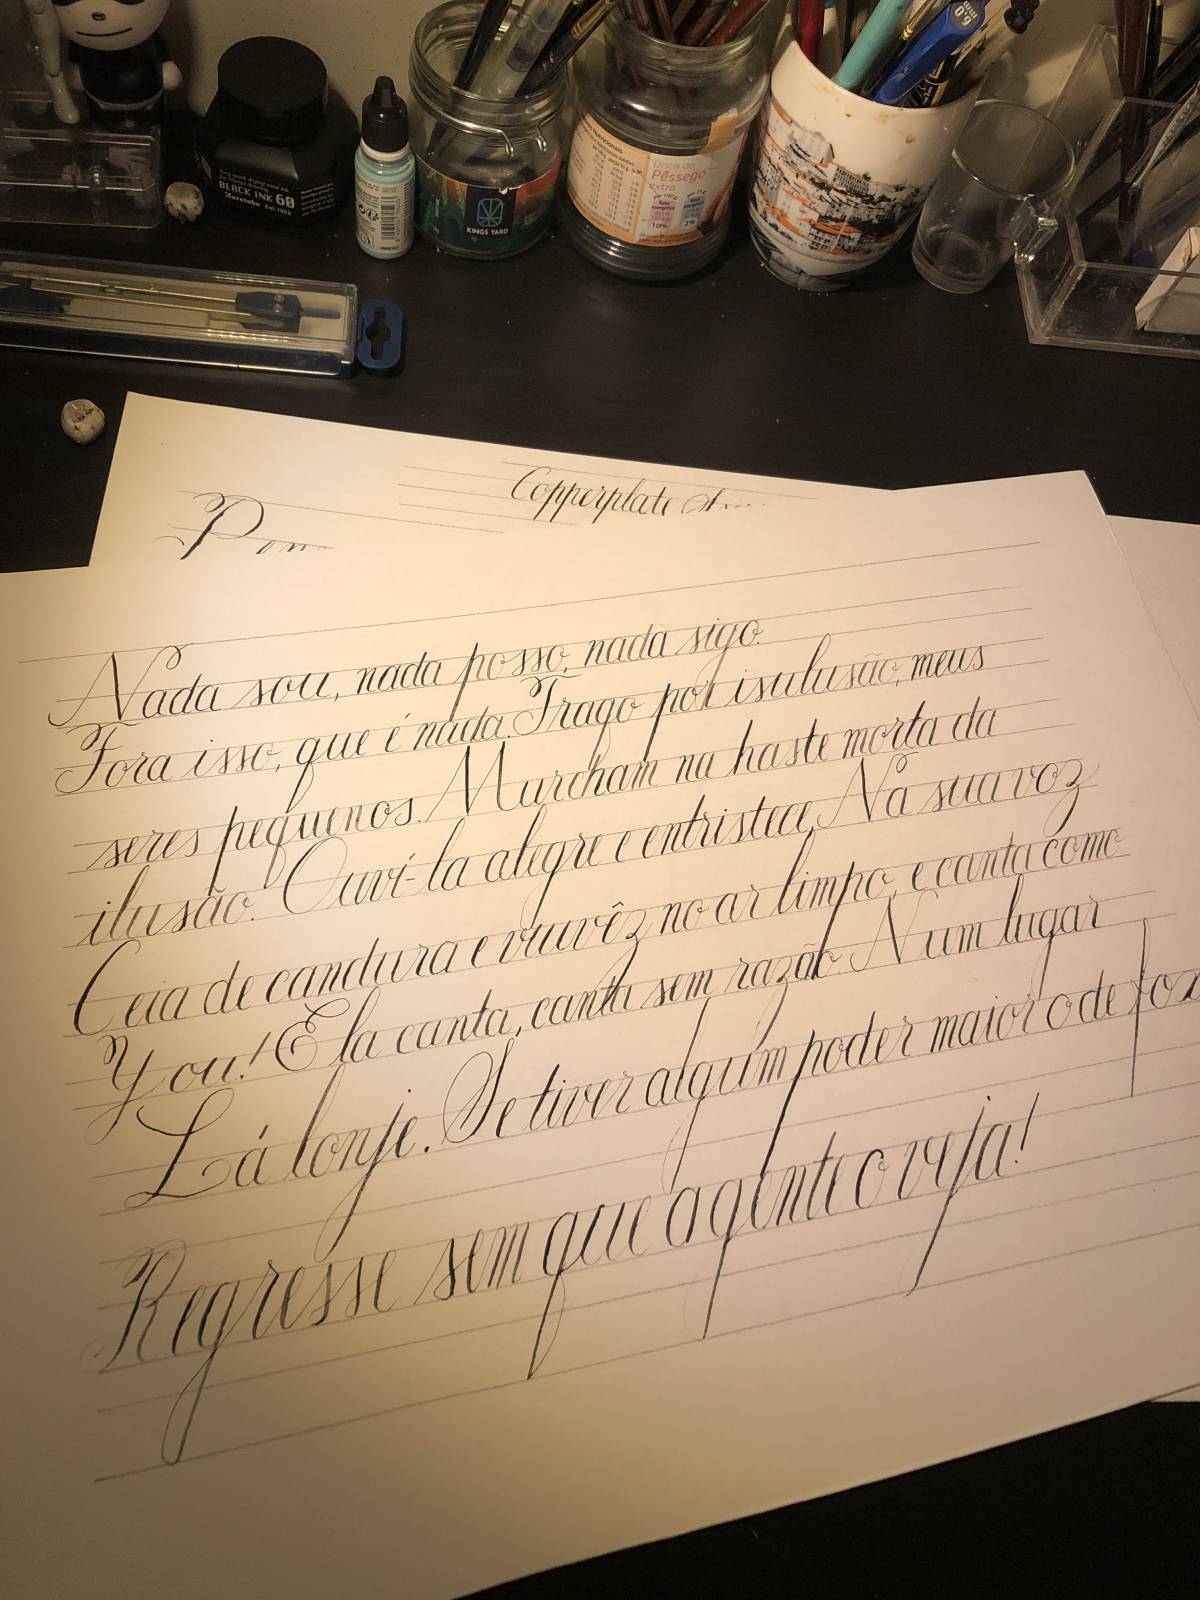 BLACK INK 60
Kuretake Est.1902
KINGS YARD
Nutricionais
Doce de
Pêssego
extra
10%
0.9
Copperplate
Nada sou, nada posso, nada sigo.
Fora isso, que é nada. Trago por isulusão, meus
seres pequenos. Murcham na haste morta da
ilusão. Ouví-la alegre e entristece, Na sua voz
Ceia de candura e viuvêz no ar limpo, e canta como
You! Ela canta, canta sem razão. Num lugar
Lá lonje. Se tiver algum poder maior o de foz
Regresse sem que a gente o veja!